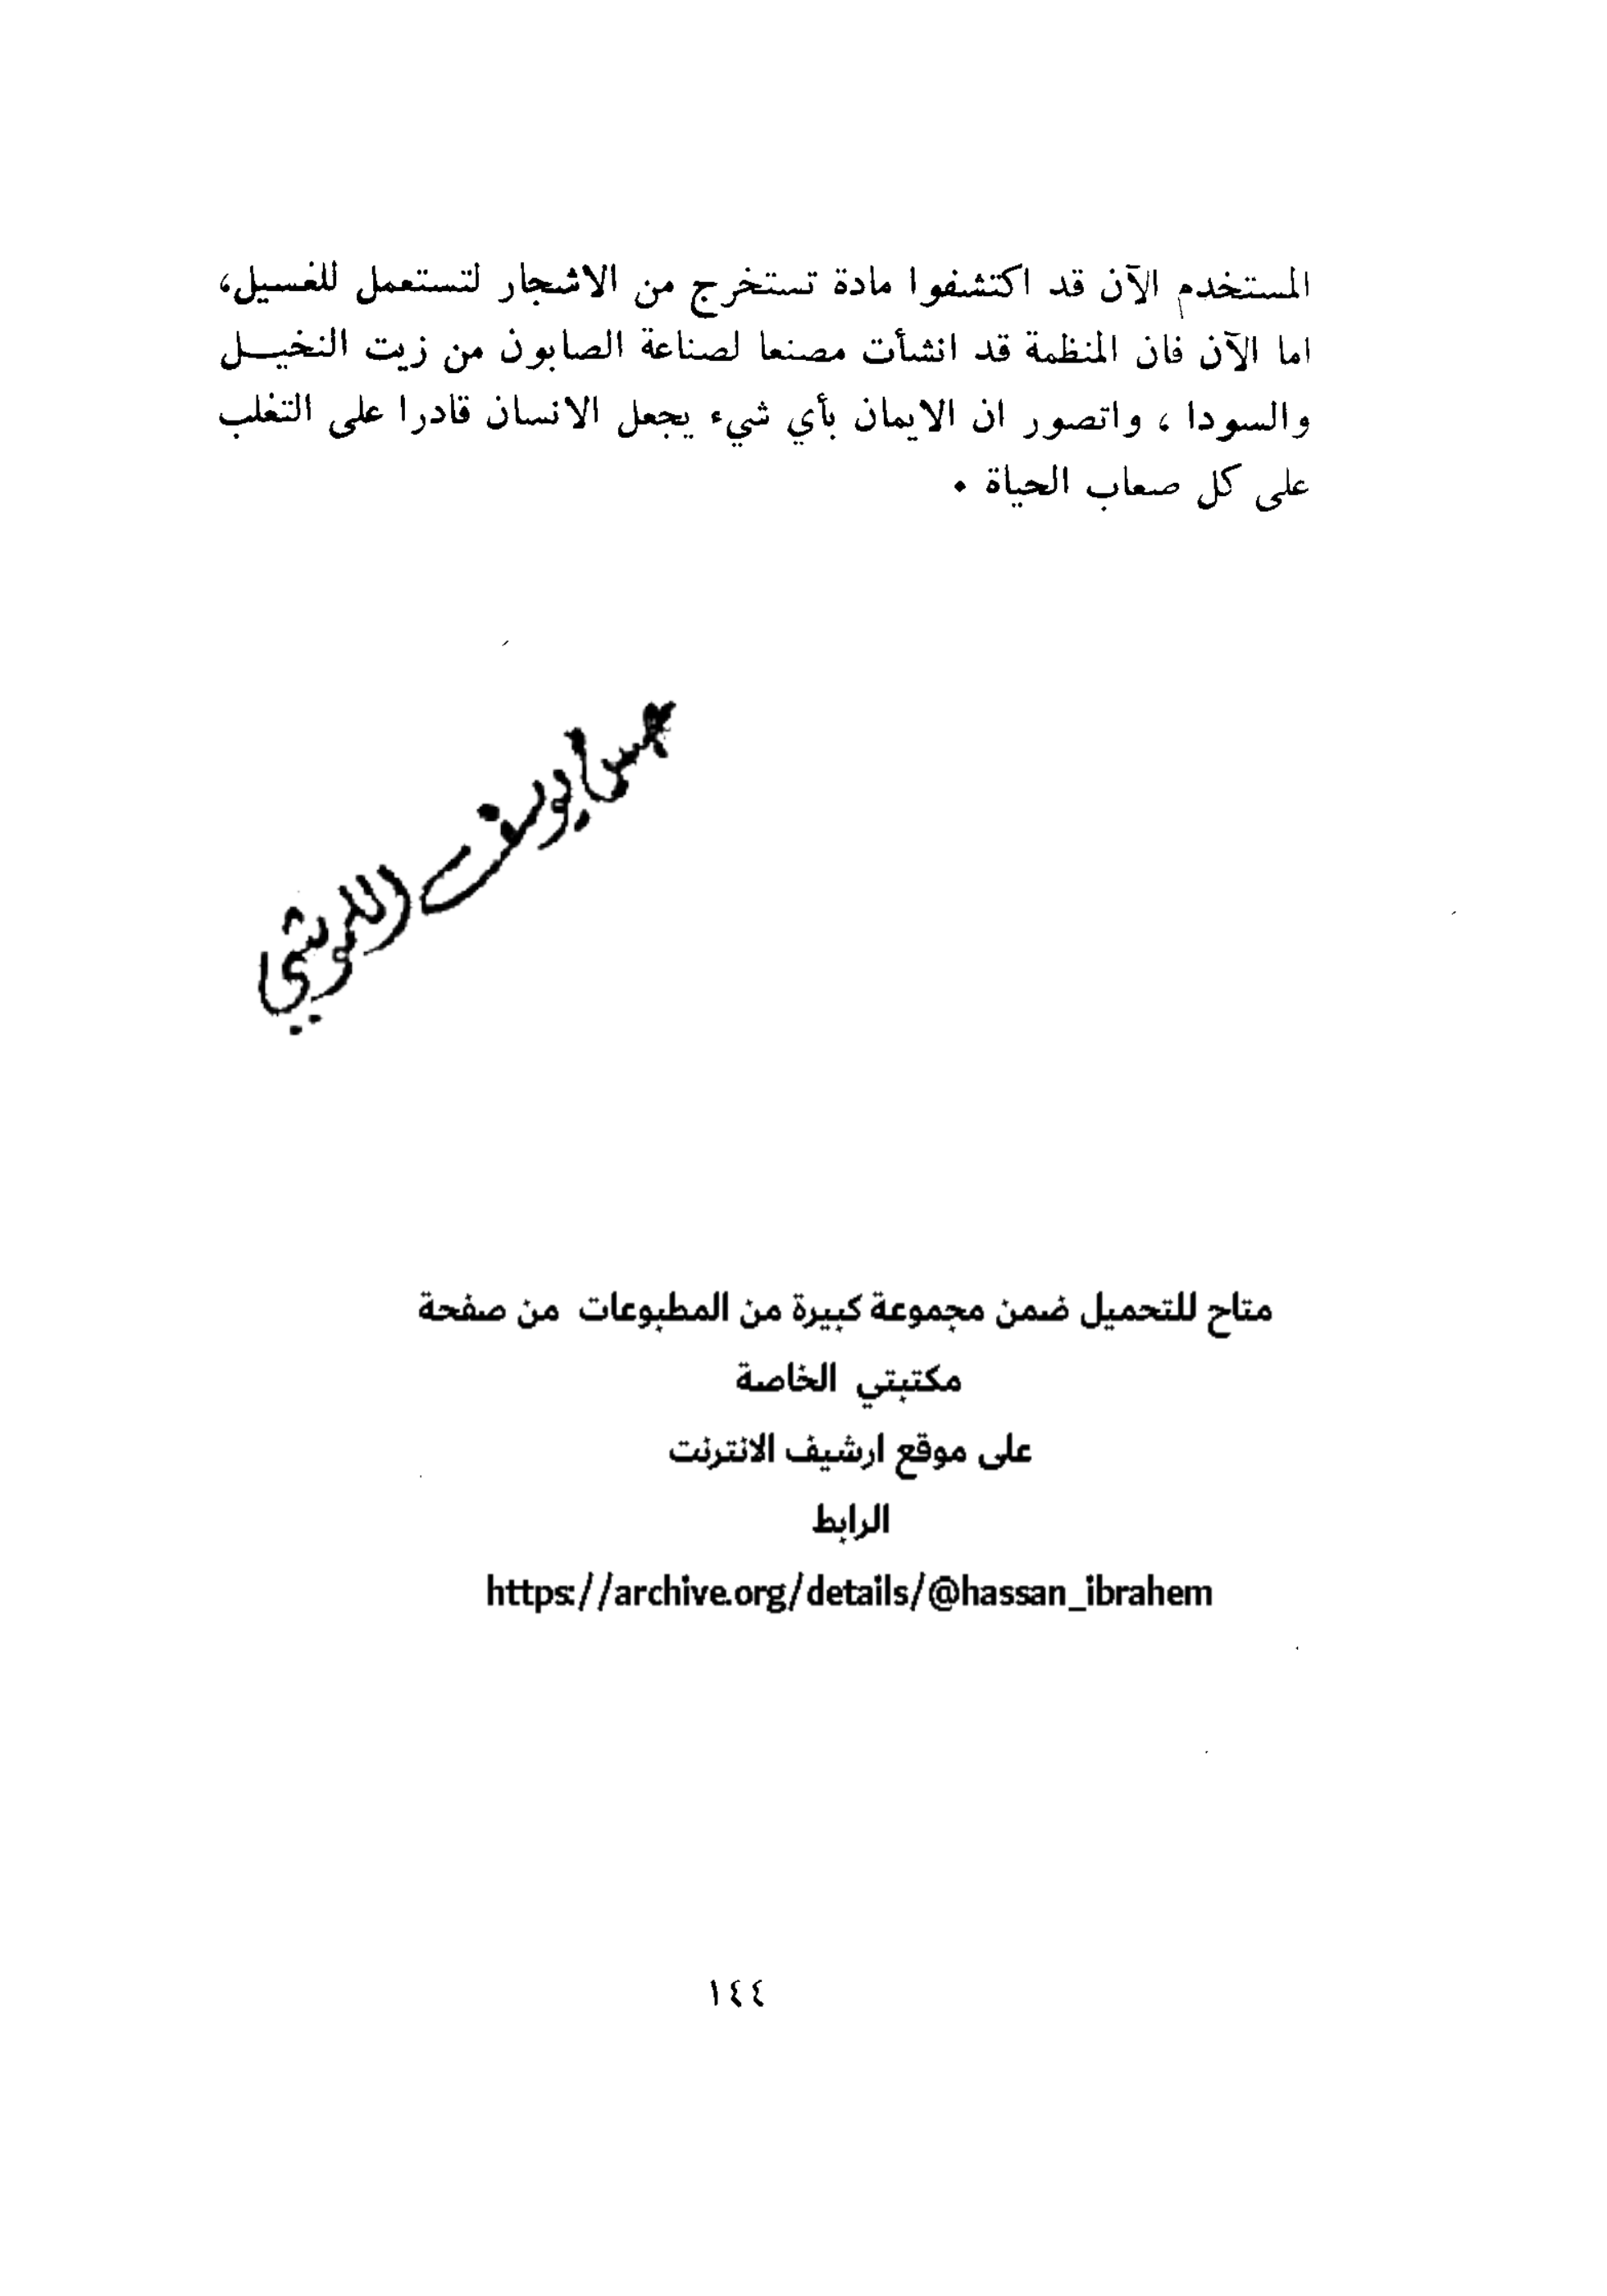 المستخدم الآن قد اكتشفوا مادة تستخرج من الاشجار لتستعمل للغسيل،
اما الآن فان المنظمة قد انشأت مصنعا لصناعة الصابون من زيت النخيــل
والسودا ، واتصور ان الايمان بأي شيء يجعل الانسان قادرا على التغلب
على كل صعاب الحياة .
يوسف
متاح للتحميل ضمن مجموعة كبيرة من المطبوعات من صفحة
مكتبتي الخاصة
على موقع ارشيف الانترنت
الرابط
https://archive.org/details/@hassan_ibrahem
١٤٤